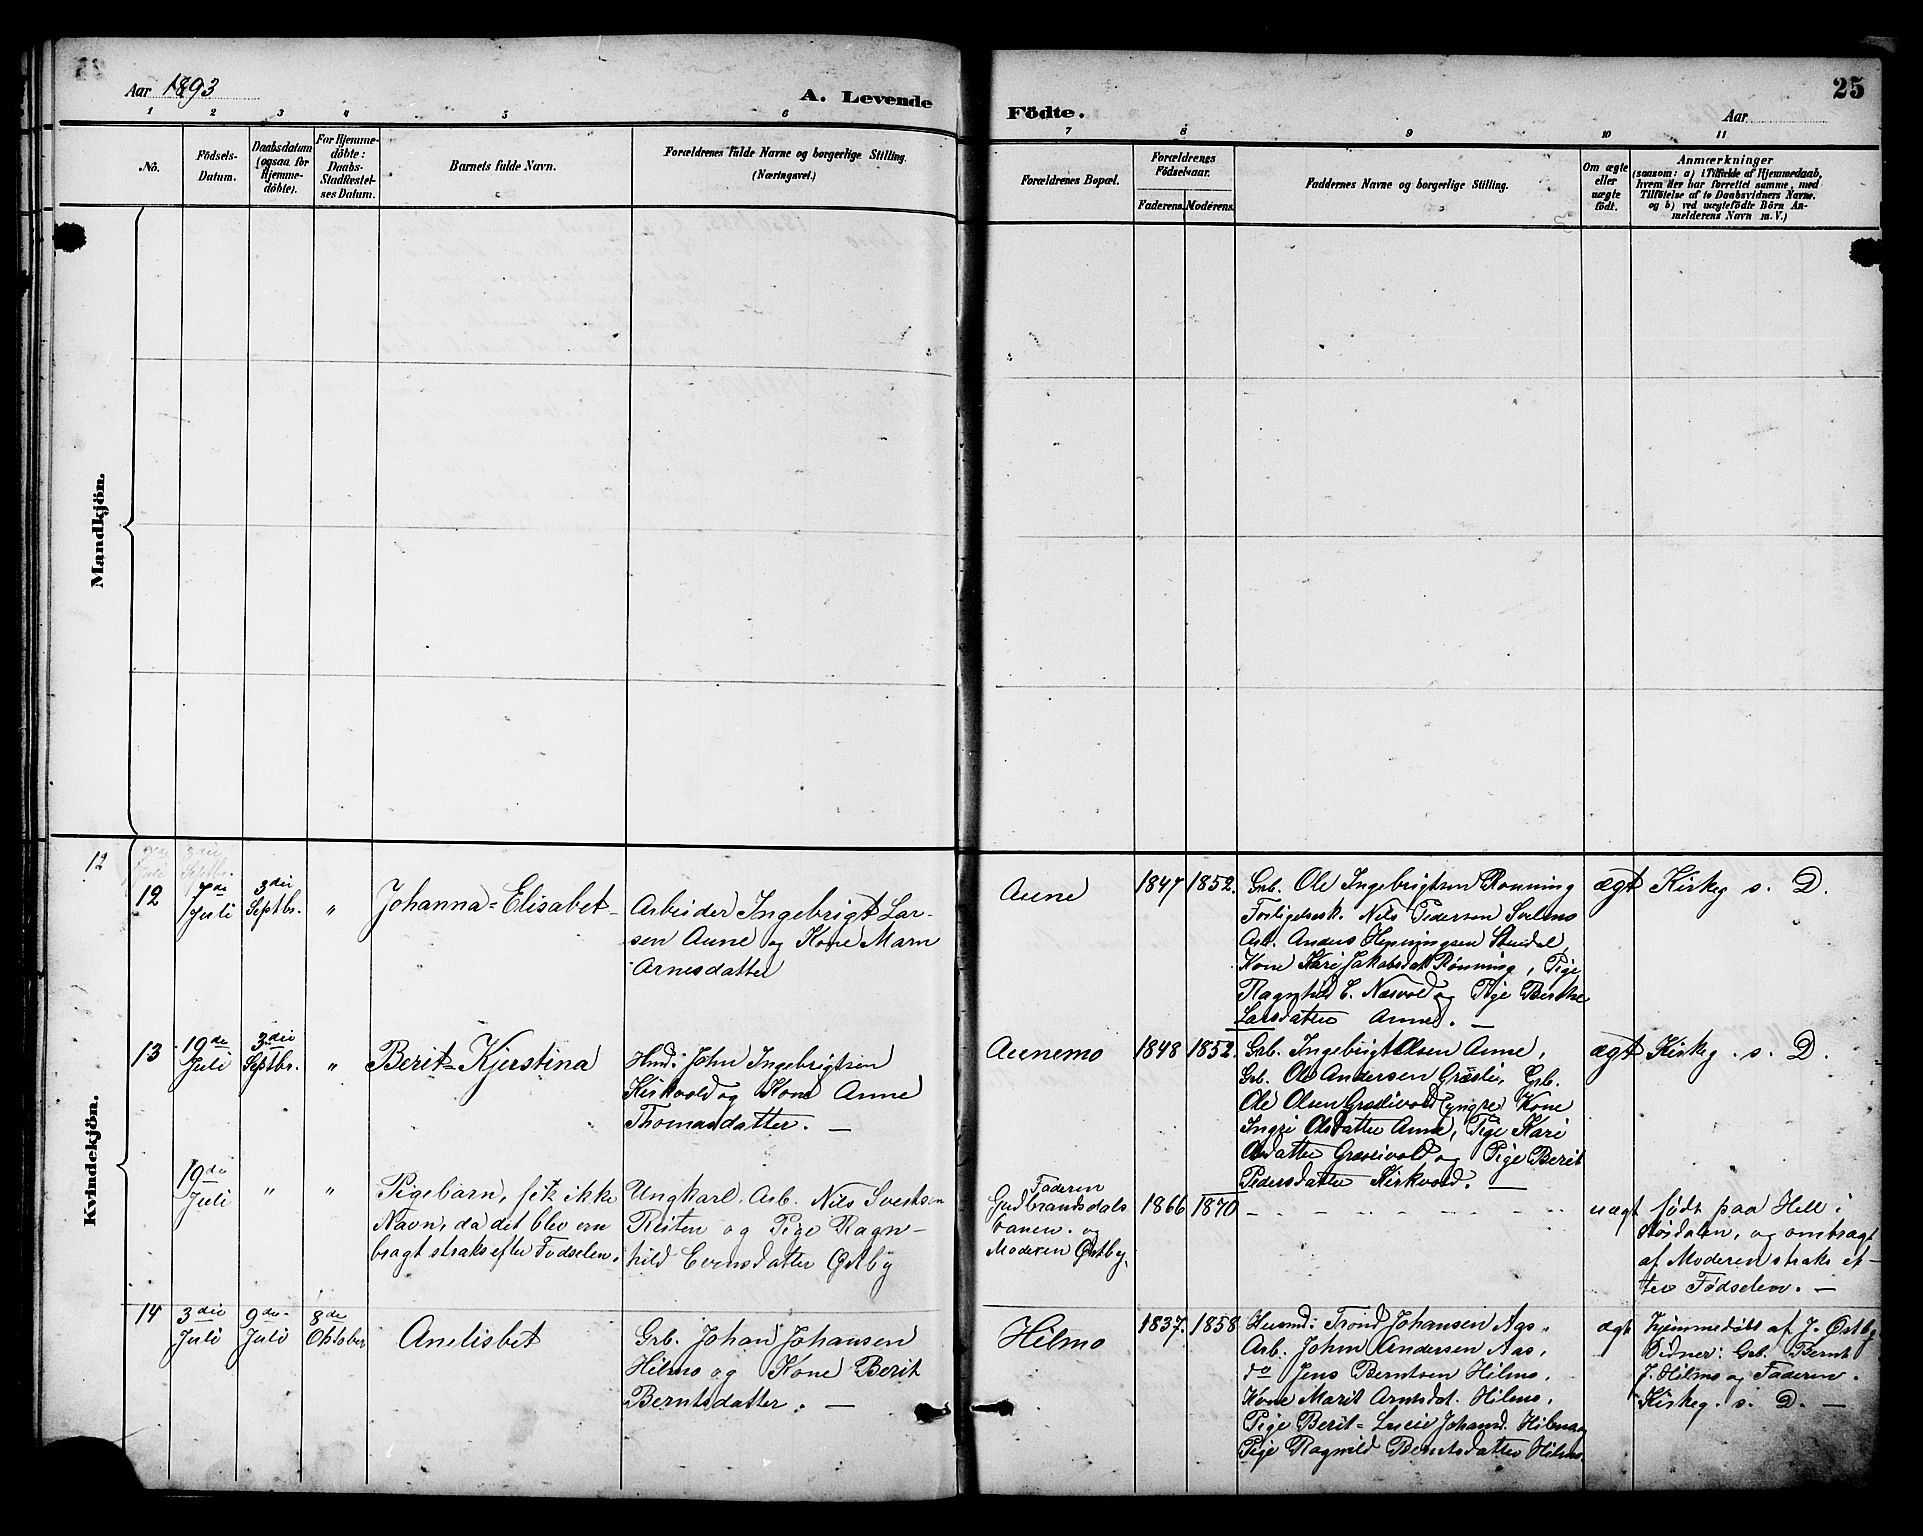 Aar 1893
A. Levende
Födte.
Aar
25
1
2
3
4
5
6
7
8
9
10
11
No.
Födsels-
Datum.
Daabsdatum
(ogsaa for
Hjemme-
döbte).
For Hjemme-
döbte:
Daabs-
Stadfæstel-
ses Datum.
Barnets fulde Navn.
Forældrenes fulde Navne og borgerlige Stilling.
(Næringsvei.)
Forældrenes Bopæl.
Forældrenes
Födselsaar.
Faderens.
Moderens.
Faddernes Navne og borgerlige Stilling.
Om ægte
eller
uægte
födt.
Anmærkninger
(saasom: a) i Tilfælde af Hjemmedaab,
hvem der har forrettet samme, med
Tilföielse af to Daabsvidners Navne.
og b) ved uægtefödte Börn An-
melderens Navn m. V.)
Mandkjön.
Kvindekjön.
12
12
7de
Juli
3die
Septbr.
"
Johanna-Elisabet
Arbeider Ingebrigt Lar-
sen Aune og Kone Marn
Arnesdatter
Aune
1847
1852.
Grb. Ole Ingebrigtsen Rönning
Nils Pedersen Svelmo
Arb. Anders Henningsen Stuedal,
Kone Kari Jakobsdat Rönning, Pige
Ragnhild E. Næsvold og Pige Berthe
Larsdatter Aune. —
ægt
Kirkeg s. D.
13
19de
Juli
3die
Septbr.
"
Berit-Kjerstina
Husm: John Ingebrigtsen
Kirkvold og Kone Anne
Thomasdatter. —
Aunemo
1848
1852.
Grb. Ingebrigt Olsen Aune,
Grb. Ole Andersen Græsli, Grb.
Ole Olsen Græslivold (yngre) Kone
Ingri Olsdatter Aune, Pige Kari
Olsdatter Græslivold og Pige Berit
Pedersdatter Kirkvold. —
ægt
Kirkeg. s. D.
19de
Juli
"
"
Pigebarn, fik ikke
Navn, da det blev om
bragt straks efter Fødselen.
Ungkarl Arb. Nils Svendsen
Reiten og Pige Ragn-
hild Berntsdatter Østby
Faderen
Gudbrandsdals
banen og
Moderen Østby.
1866
1870
uægt
født paa Hell i
Størdalen, og ombragt
af Moderen straks ef-
ter Fødselen. —
14
3die
Juli
9de
Juli
8de
Oktober
Anelisbet
Grb. Johan Johansen
Hilmo og Kone Berit
Berntsdatter. —
Hilmo
1837.
1858
Husmd: Trond Johansen Aas.
Arb. John Andersen Aas,
do Jens Berntsen Hilmo,
Kone Marit Arntsdat. Hilmo,
Pige Berit-Lucie Johansd. Hilmo og
Pige Ragnild Berntsdatter Hilmo.
ægt
Hjemmedøbt af J. Østby
Vidner: Grb. Bernt
J. Hilmo og Faderen.
Kirkeg. s. D. —